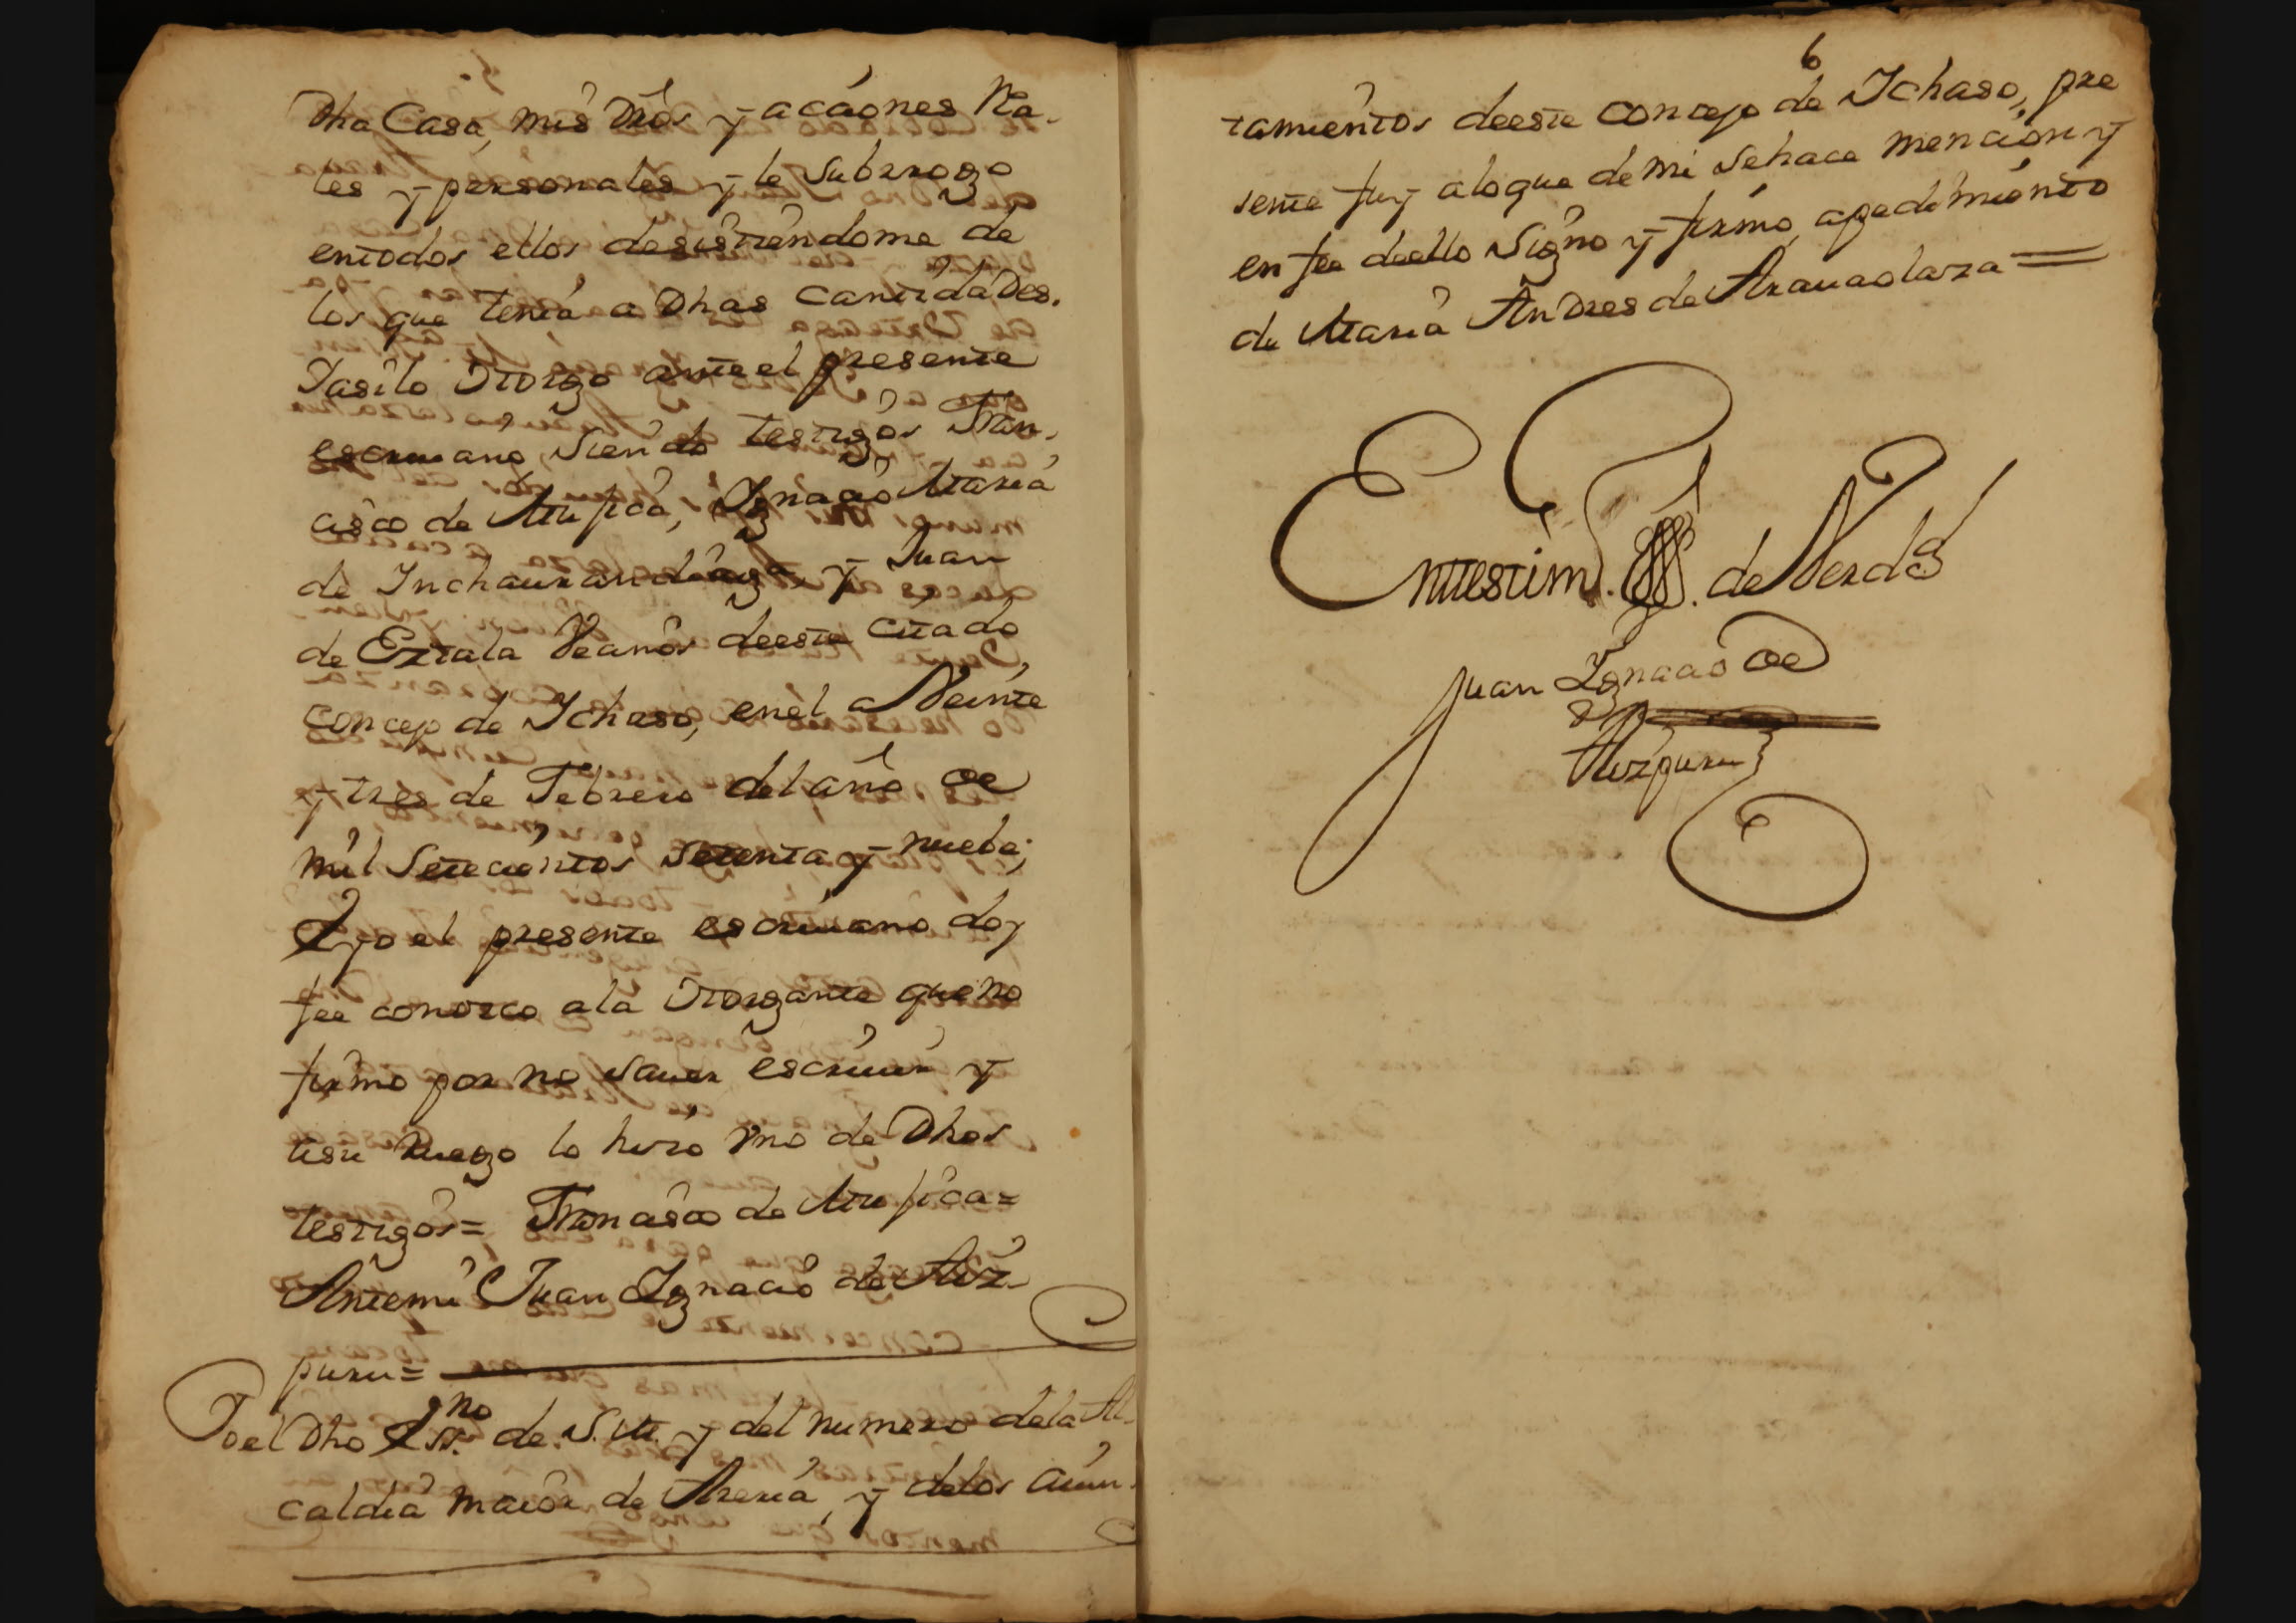 Dha Casa, mis Dros y acciones Rea-
les y personales y le Subrrogo
entodos ellos desistiendome de
los que tenia a Dhas Cantidades.
Y asi lo Otorgo ante el presente
escrivano, siendo testigos Fran-
cisco de Mufica, Ignacio Maria
de Inchaurandiaga, y Juan
de Eztala Vecinos deeste citado
concejo de Ichaso, en el a Veinte
y tres de Febrero del año de
mil Setecientos setenta y nuebe;
E yo el presente escrivano doy
fee conozco ala Otorgante que no
firmo por no saver escrivir y
asu ruego lo hizo Vno de Dhos
testigos= Francisco de Mufica=
Antemi Juan Ignacio de Aiz-
puru=
Yo el Dho Essno de S.M. y del numero dela Al-
caldia maior de Areria, y delos aiun-
6
tamientos deeste concejo de Ichaso, pre
sente fuy alo que de mi sehace mencion y
en fee deello Signo y firmo, apedimiento
de Maria Andres de Aranaolaza=
Entestim.o de Verdad
Juan Ignacio de
Aizpuru